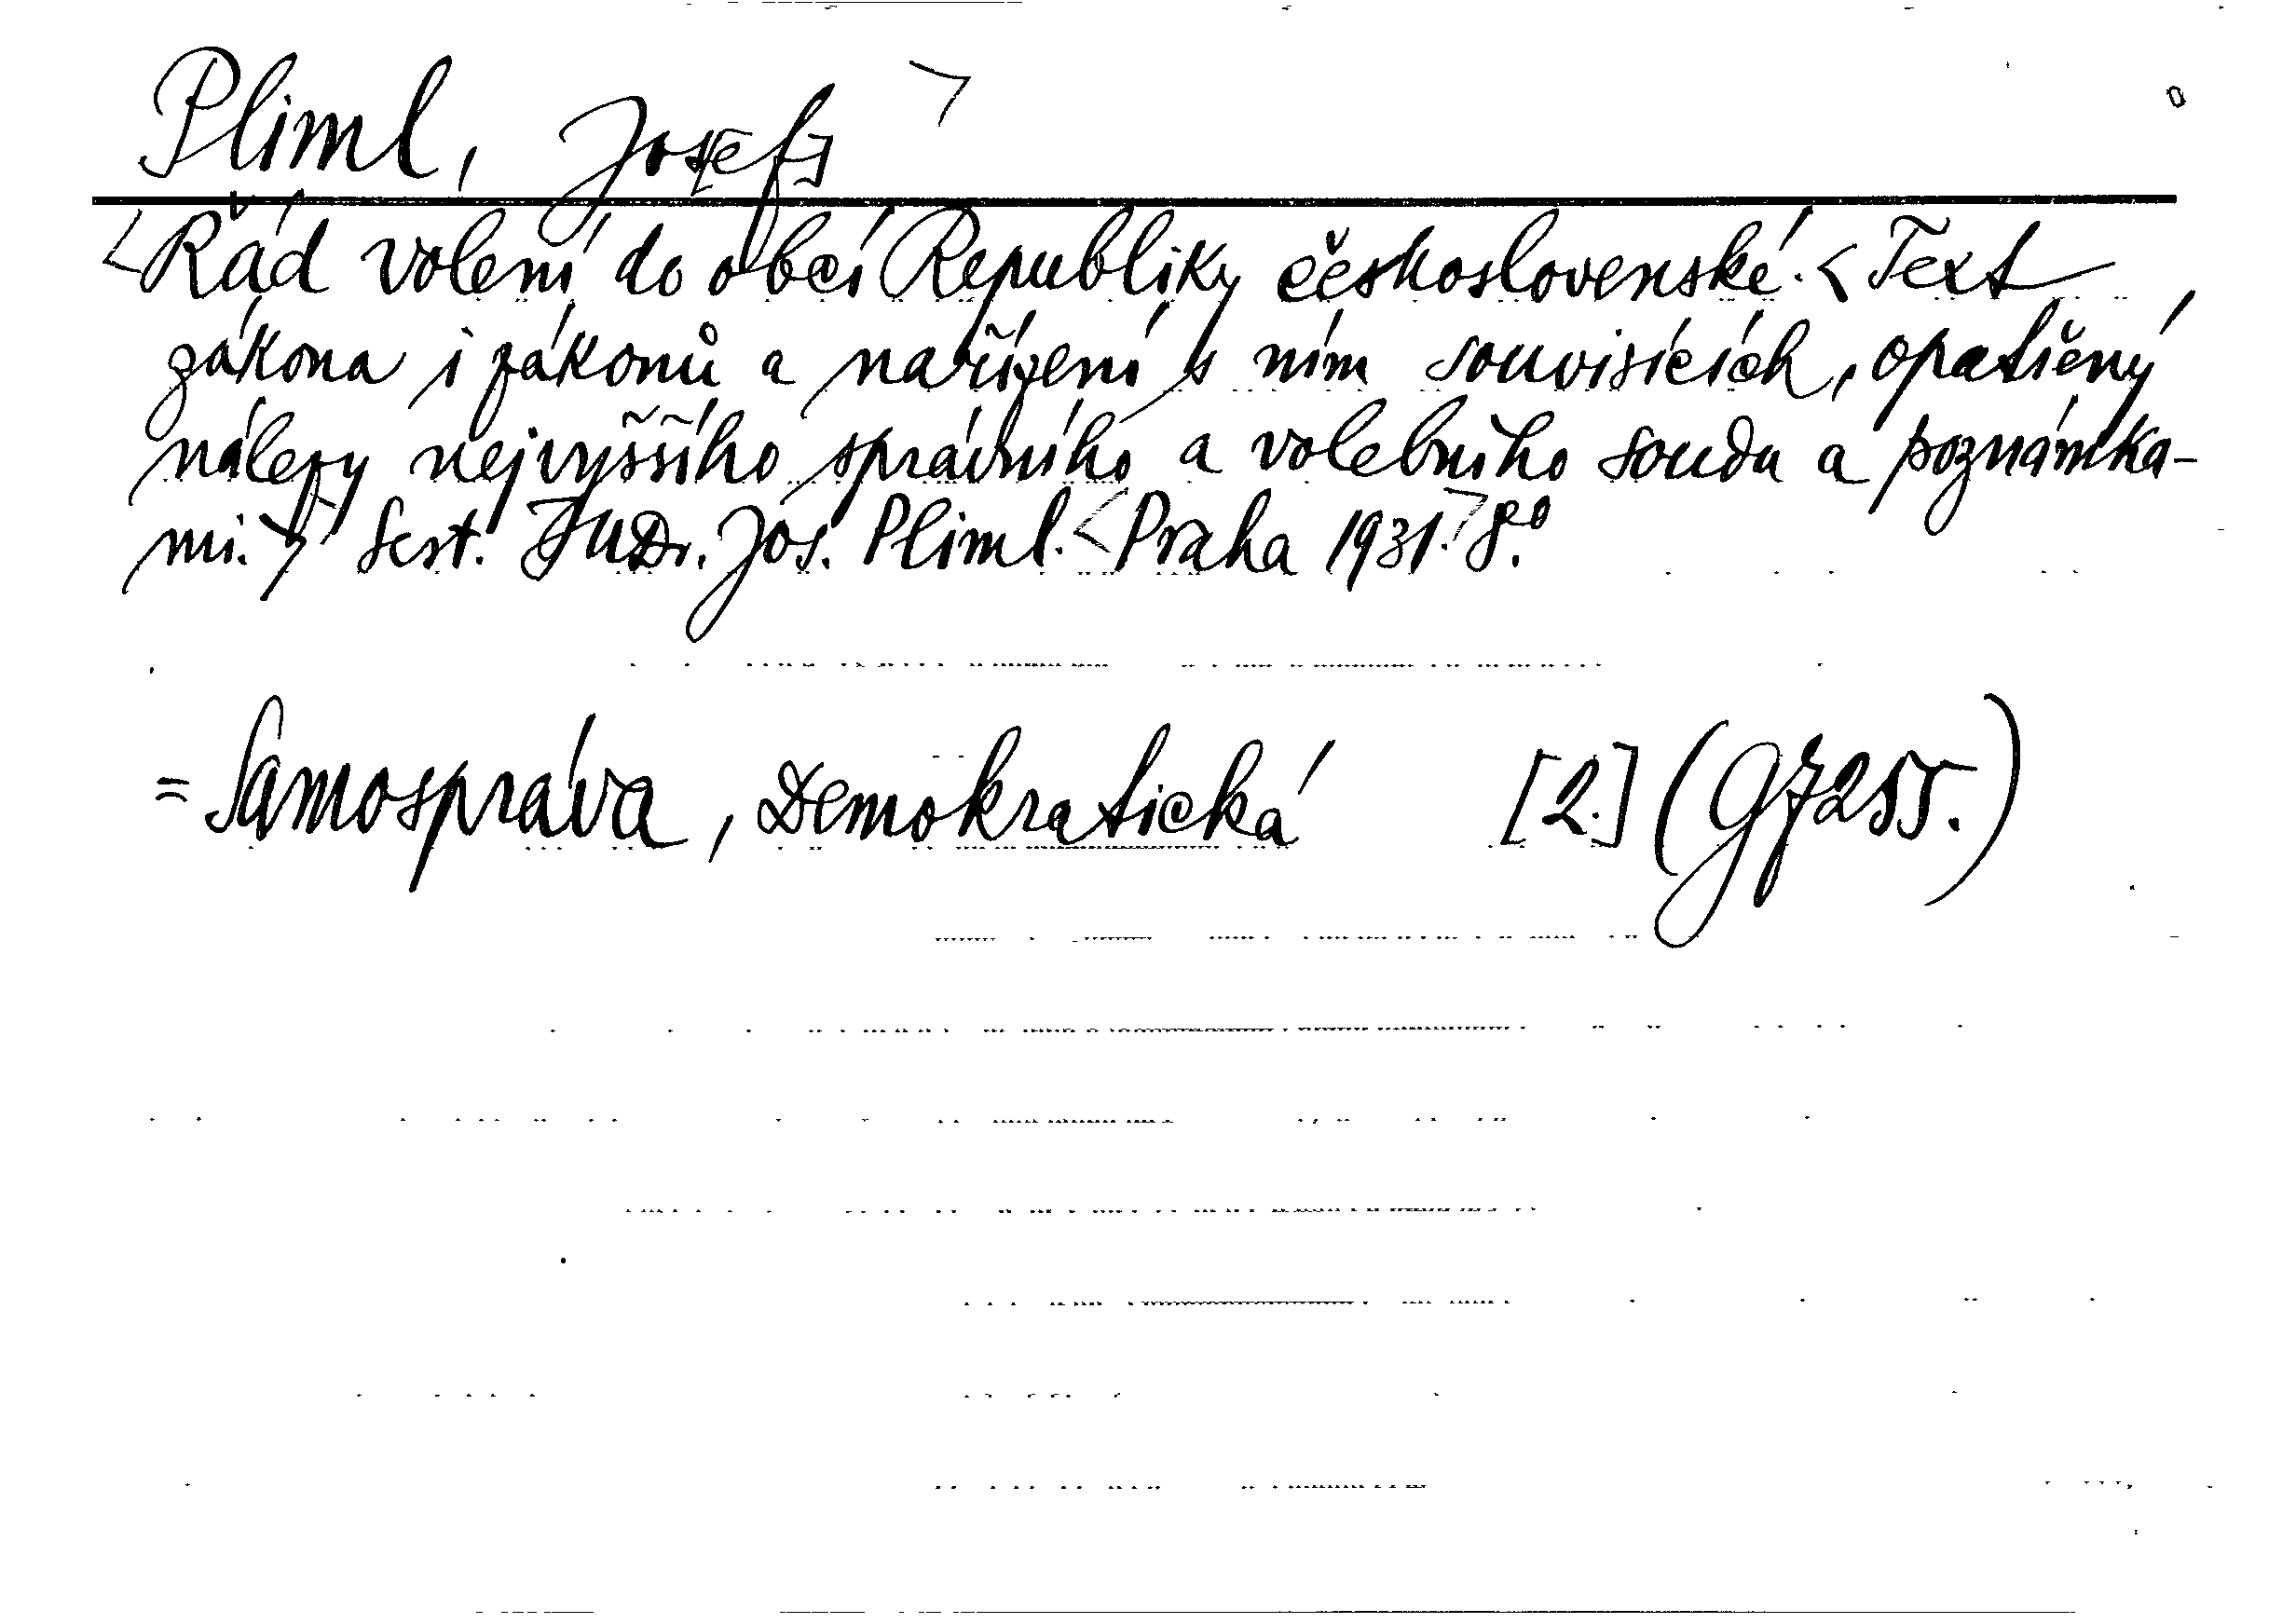 Pliml, Jos[ef]>
<Řád volení do obcí Republiky československé. <Text
zákona i zákonů a nařízení s ním souvisících, opatřený
nálezy nejvyššího správního a volebního soudu a poznámka-
mi.> Sest. JUDr. Jos. Pliml. <Praha 1931.> 8.°
= Samospráva, Demokratická [2.] (G 7255.)